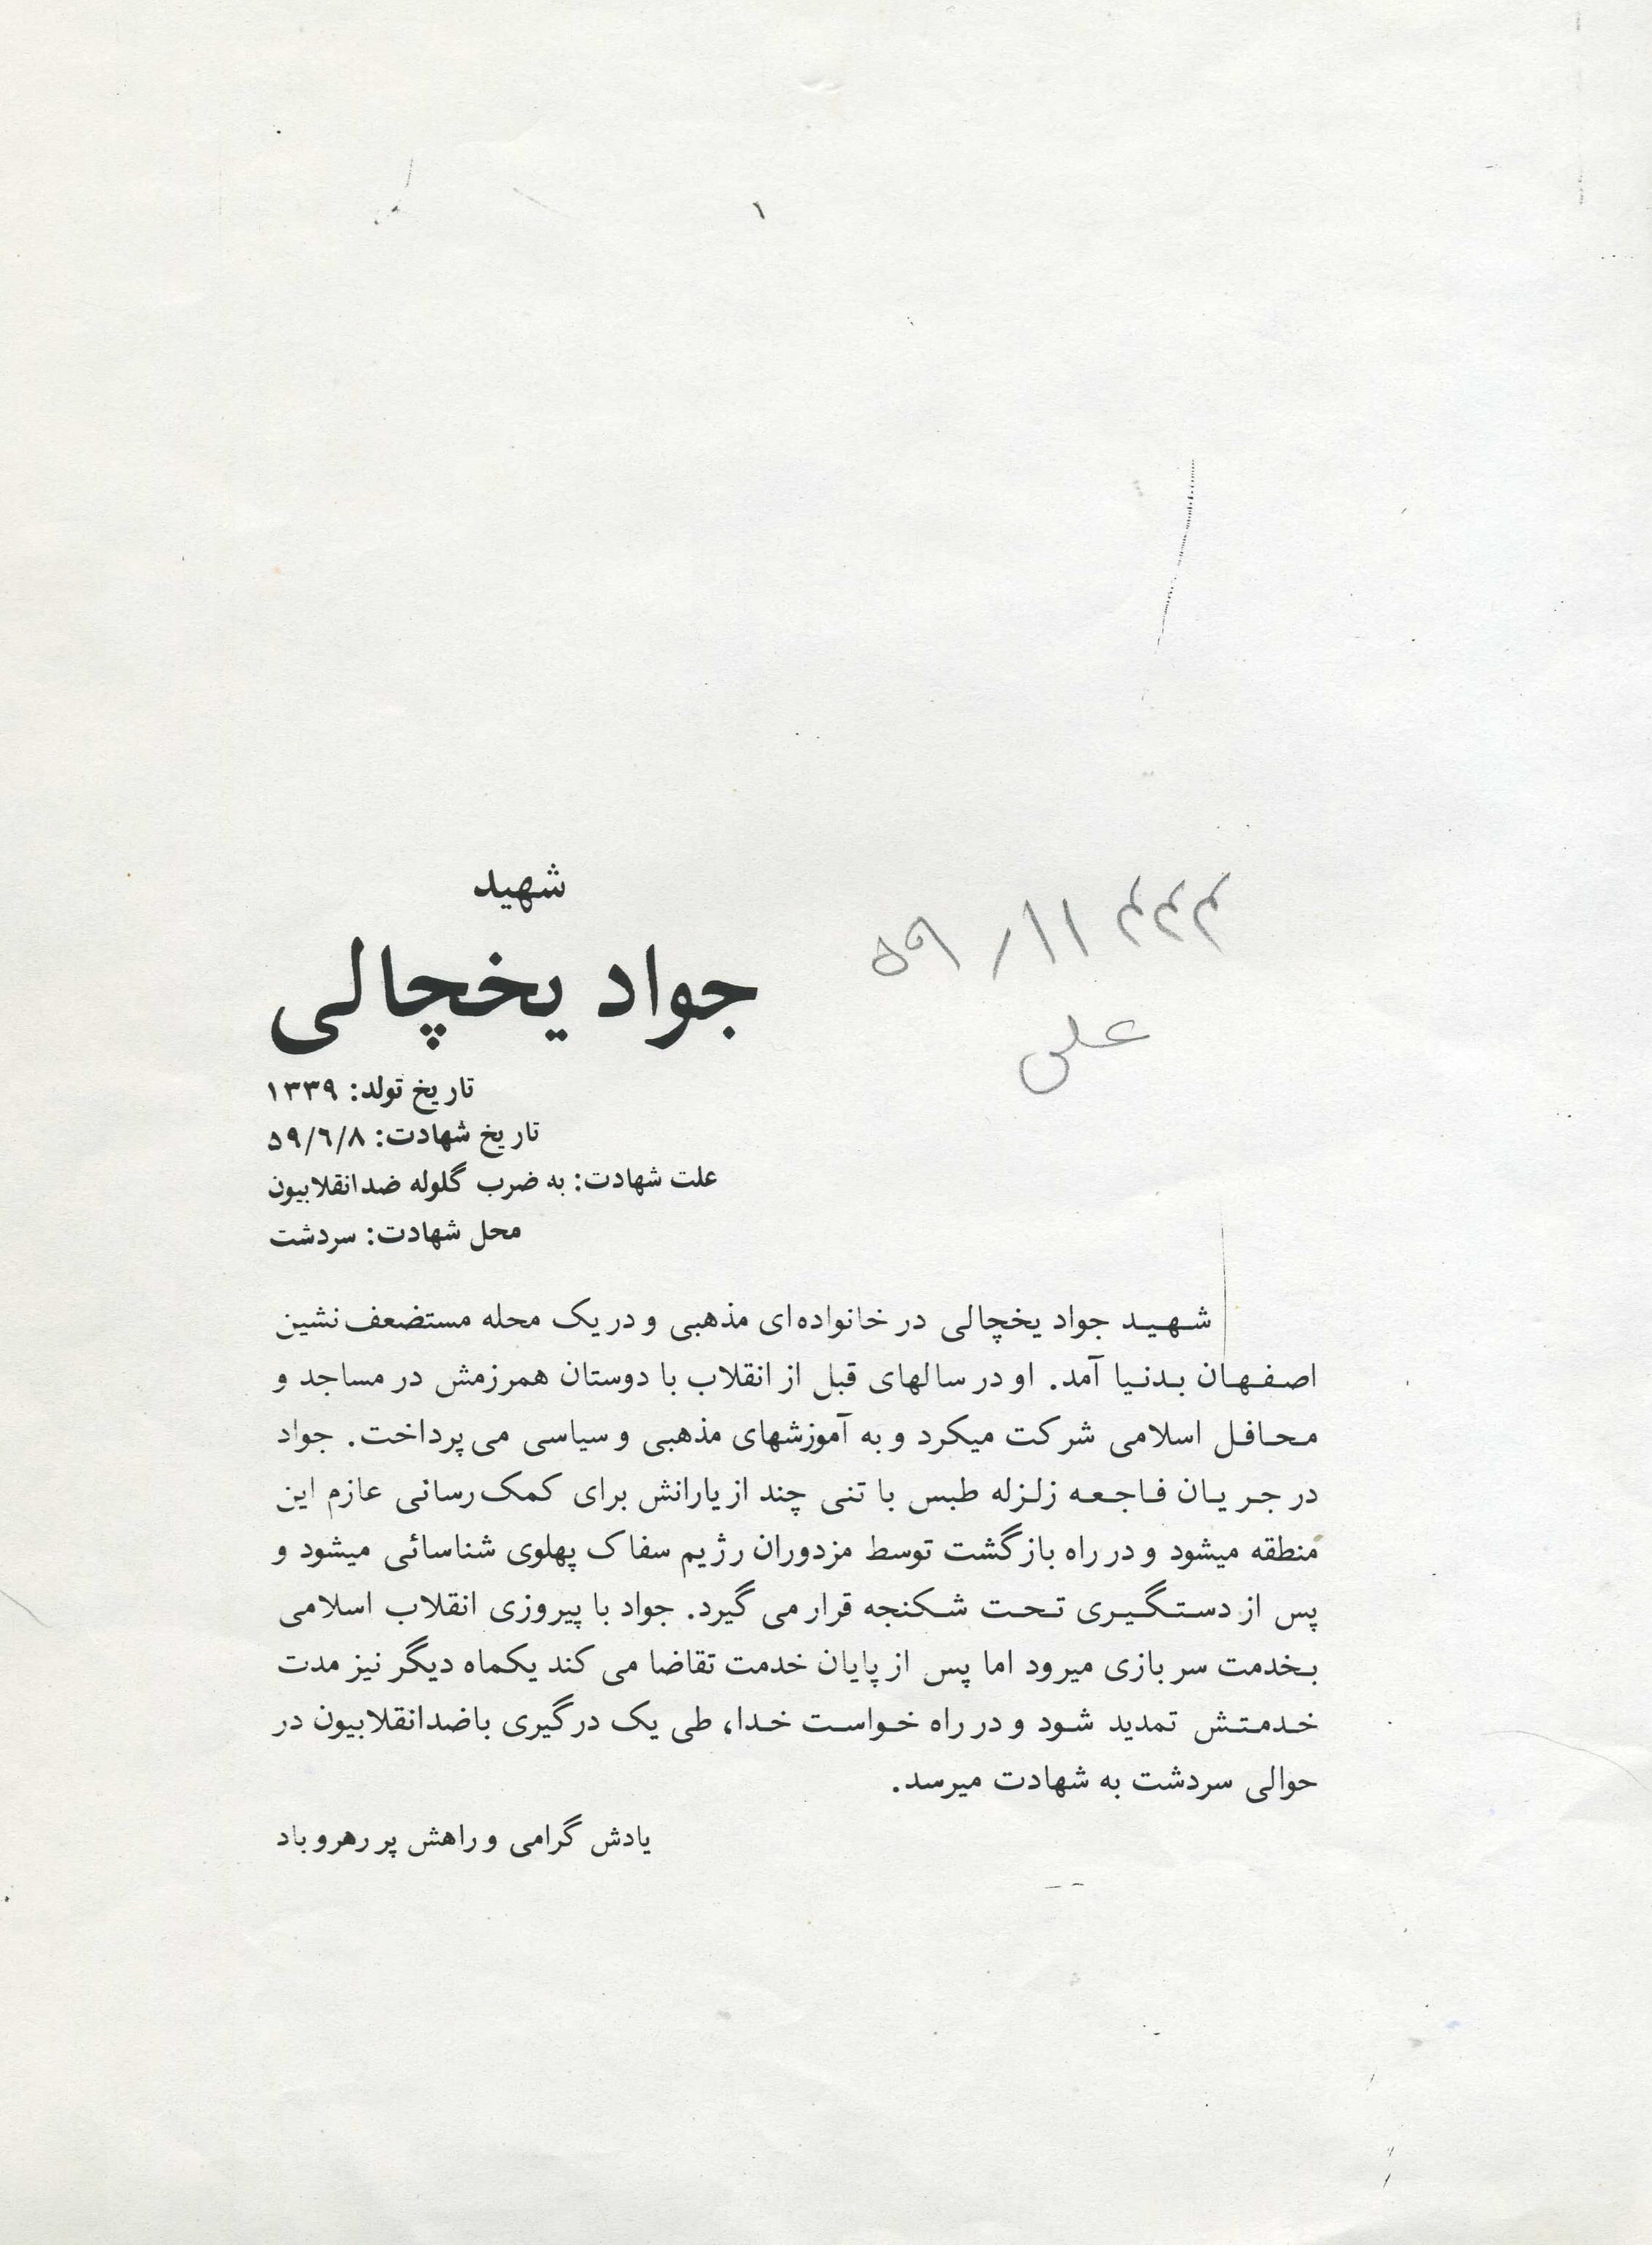 ۱
شهید
جواد یخچالی
تاریخ تولد: ۱۳۳۹
تاریخ شهادت: ۵۹/٦/۸
علت شهادت: به ضرب گلوله ضدانقلابیون
محل شهادت: سردشت
۵۹
علی
شهید جواد یخچالی در خانواده‌ای مذهبی و در یک محله مستضعف نشین
اصفهان بدنیا آمد. او در سالهای قبل از انقلاب با دوستان همرزمش در مساجد و
محافل اسلامی شرکت میکرد و به آموزشهای مذهبی و سیاسی می پرداخت. جواد
در جریان فاجعه زلزله طبس با تنی چند از یارانش برای کمک رسانی عازم این
منطقه میشود و در راه بازگشت توسط مزدوران رژیم سفاک پهلوی شناسائی میشود و
پس از دستگیری تحت شکنجه قرار می گیرد. جواد با پیروزی انقلاب اسلامی
بخدمت سربازی میرود اما پس از پایان خدمت تقاضا می کند یکماه دیگر نیز مدت
خدمتش تمدید شود و در راه خواست خدا، طی یک درگیری باضدانقلابیون در
حوالی سردشت به شهادت میرسد.
یادش گرامی و راهش پر رهرو باد